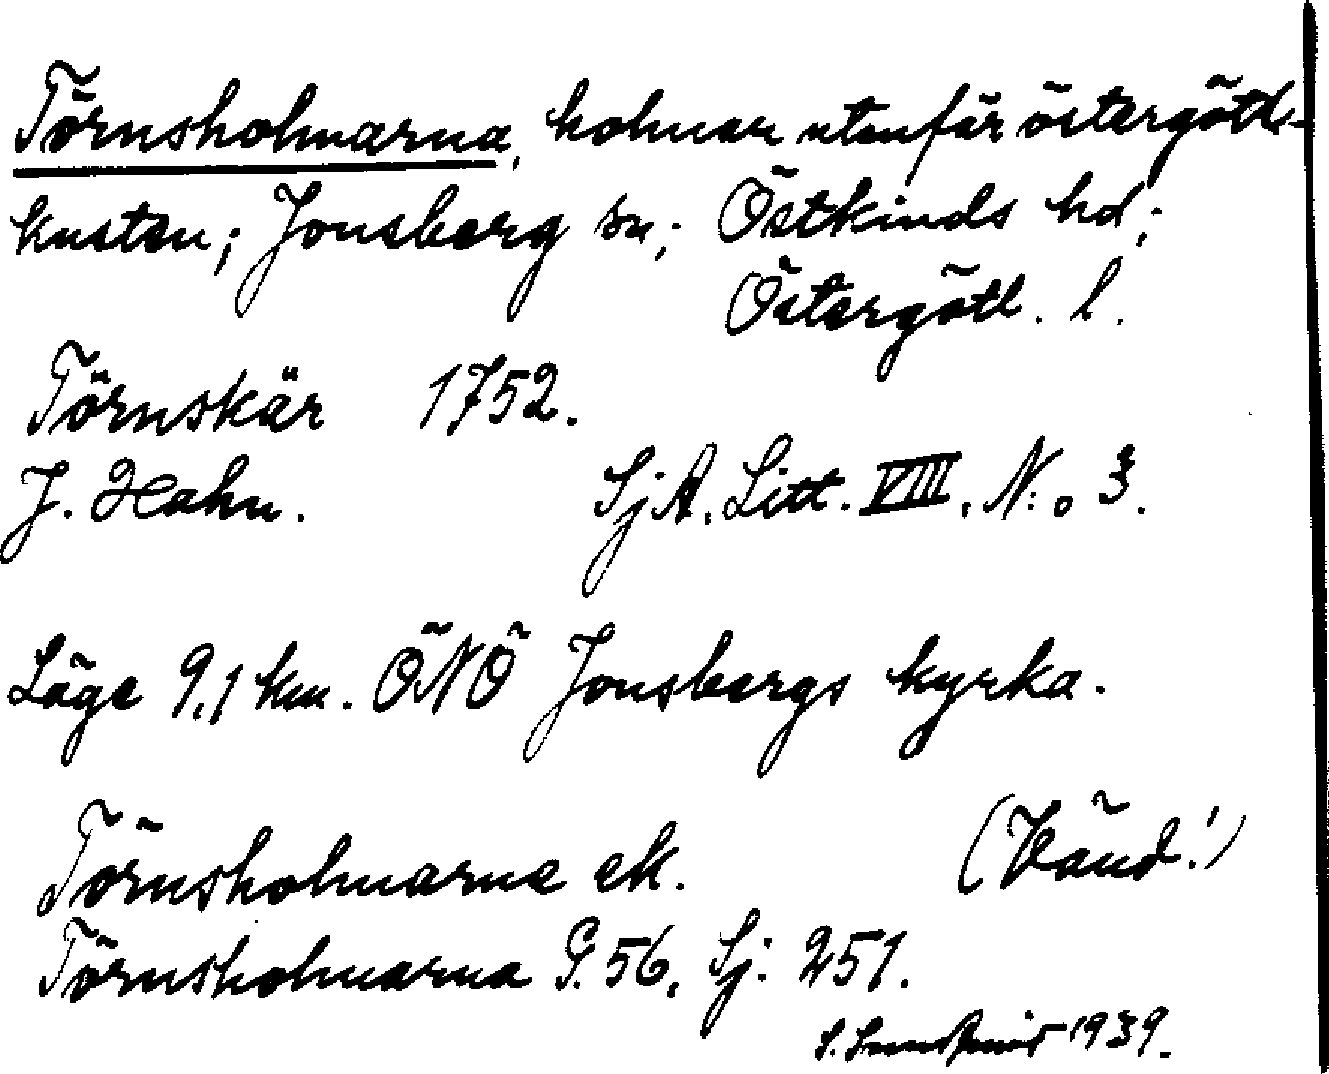 Törnsholmarna, holmar utanför östergötl-
kusten; Jonsberg sn; Östkinds hd;
Östergötl. l.
Törnskär 1752.
J. Hahn. SjA. Litt. VIII. N:o 3.
Läge 9,1 km. ÖNÖ Jonsbergs kyrka.
Törnsholmarne ek. (Vänd!)
Törnsholmarna G. 56, Sj: 251.
S. 1939.